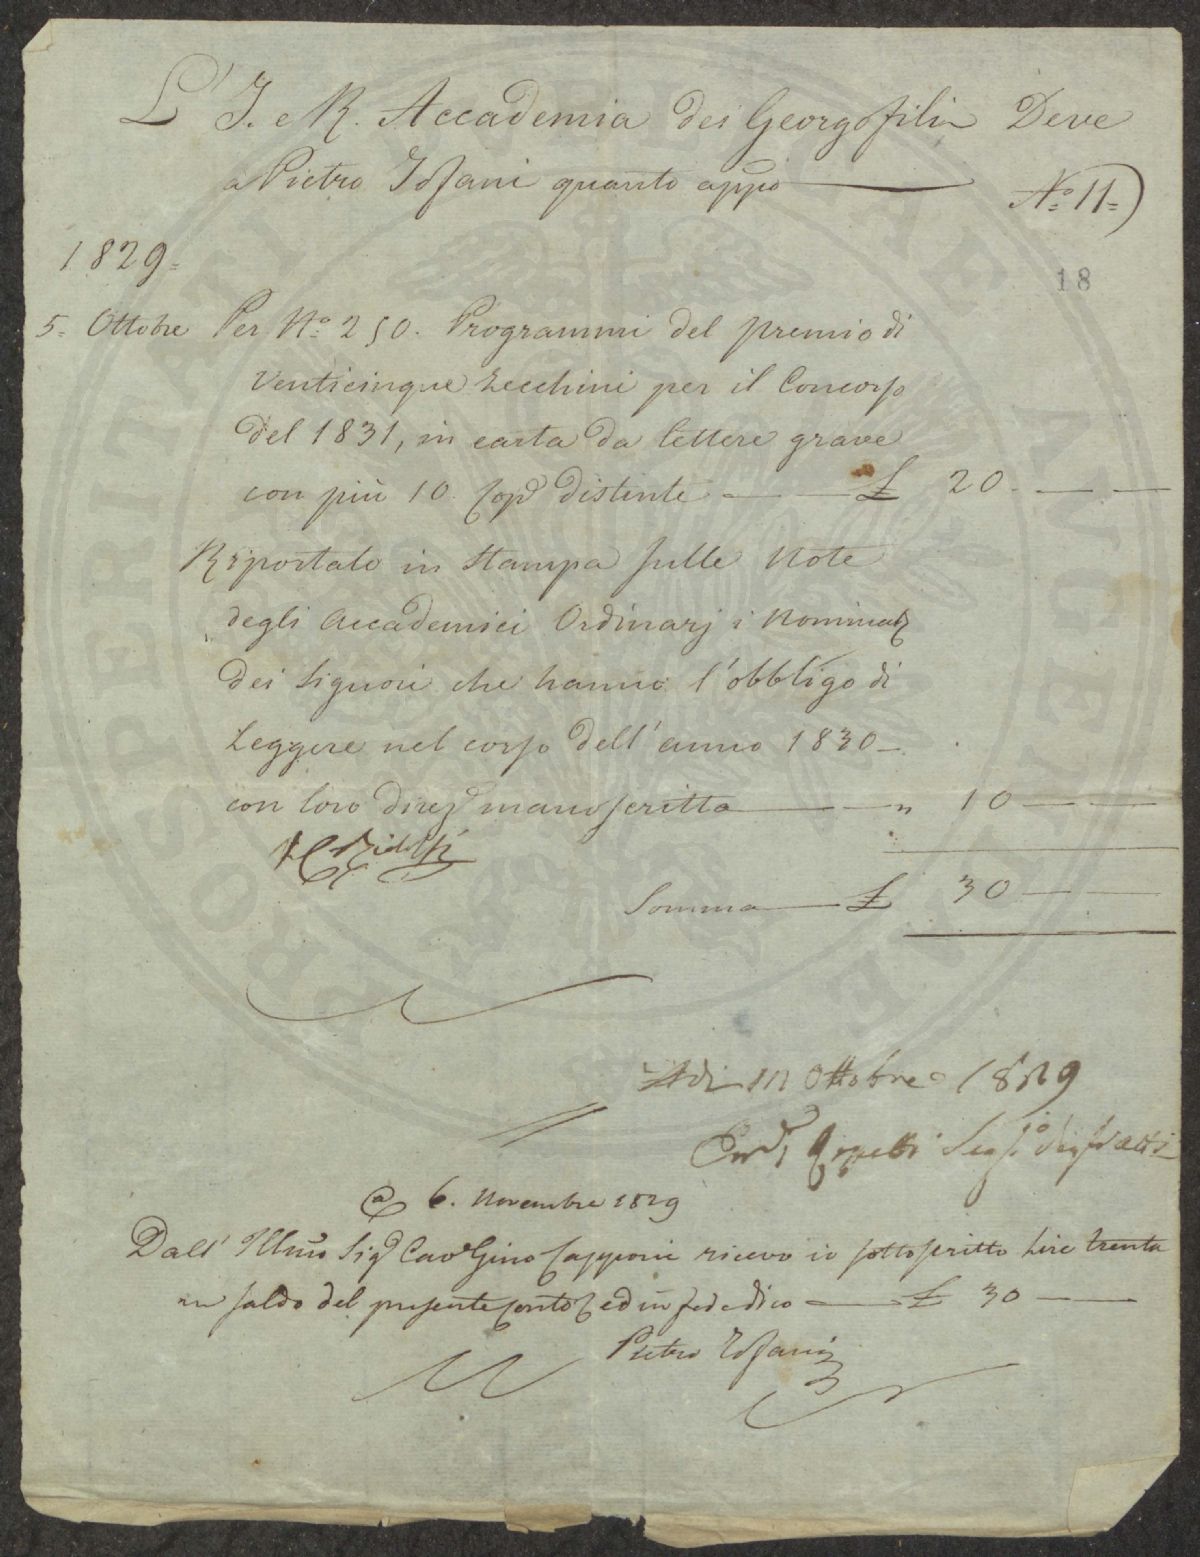 L' I. e R. Accademia dei Georgofili Deve
a Pietro Tofani quanto app̃o
N.o 11=)
1829=
18
5. Ottobre Per N.o 250. Programmi del premio di
Venticinque Zecchini per il Concorso
del 1831, in carta da lettere grave
con più 10. Copie distinte £ 20.
Riportato in Stampa sulle Note
degli Accademici Ordinarj i Nominati
dei Signori che hanno l'obbligo di
Leggere nel corso dell'anno 1830
con loro direz.e manoscritta " 10
C. Ridolfi
Somma £ 30
Adì 12 Ottobre 1829
Repetti Seg.o degli Atti
6. Novembre 1829
Dall' Illm̃o Sig.r Cav.e Gino Capponi ricevo io sottoscritto Lire trenta
in saldo del presente Conto ed in fede dico £ 30
Pietro Tofani
PROSPERITATI PUBLICAE AUGENDAE